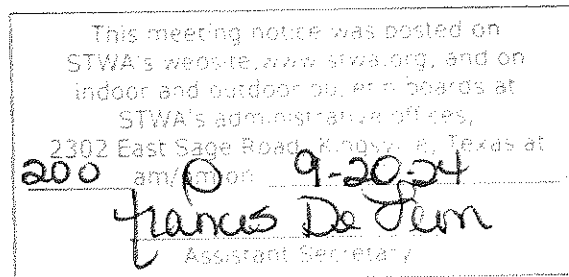 This meeting notice was posted on
STWA's website, www.stwa.org, and on
indoor and outdoor bulletin boards at
STWA's administrative offices,
2302 East Sage Road, Kingsville, Texas at
200 am/pm on 9-20-24
Francis De Leon
Assistant Secretary